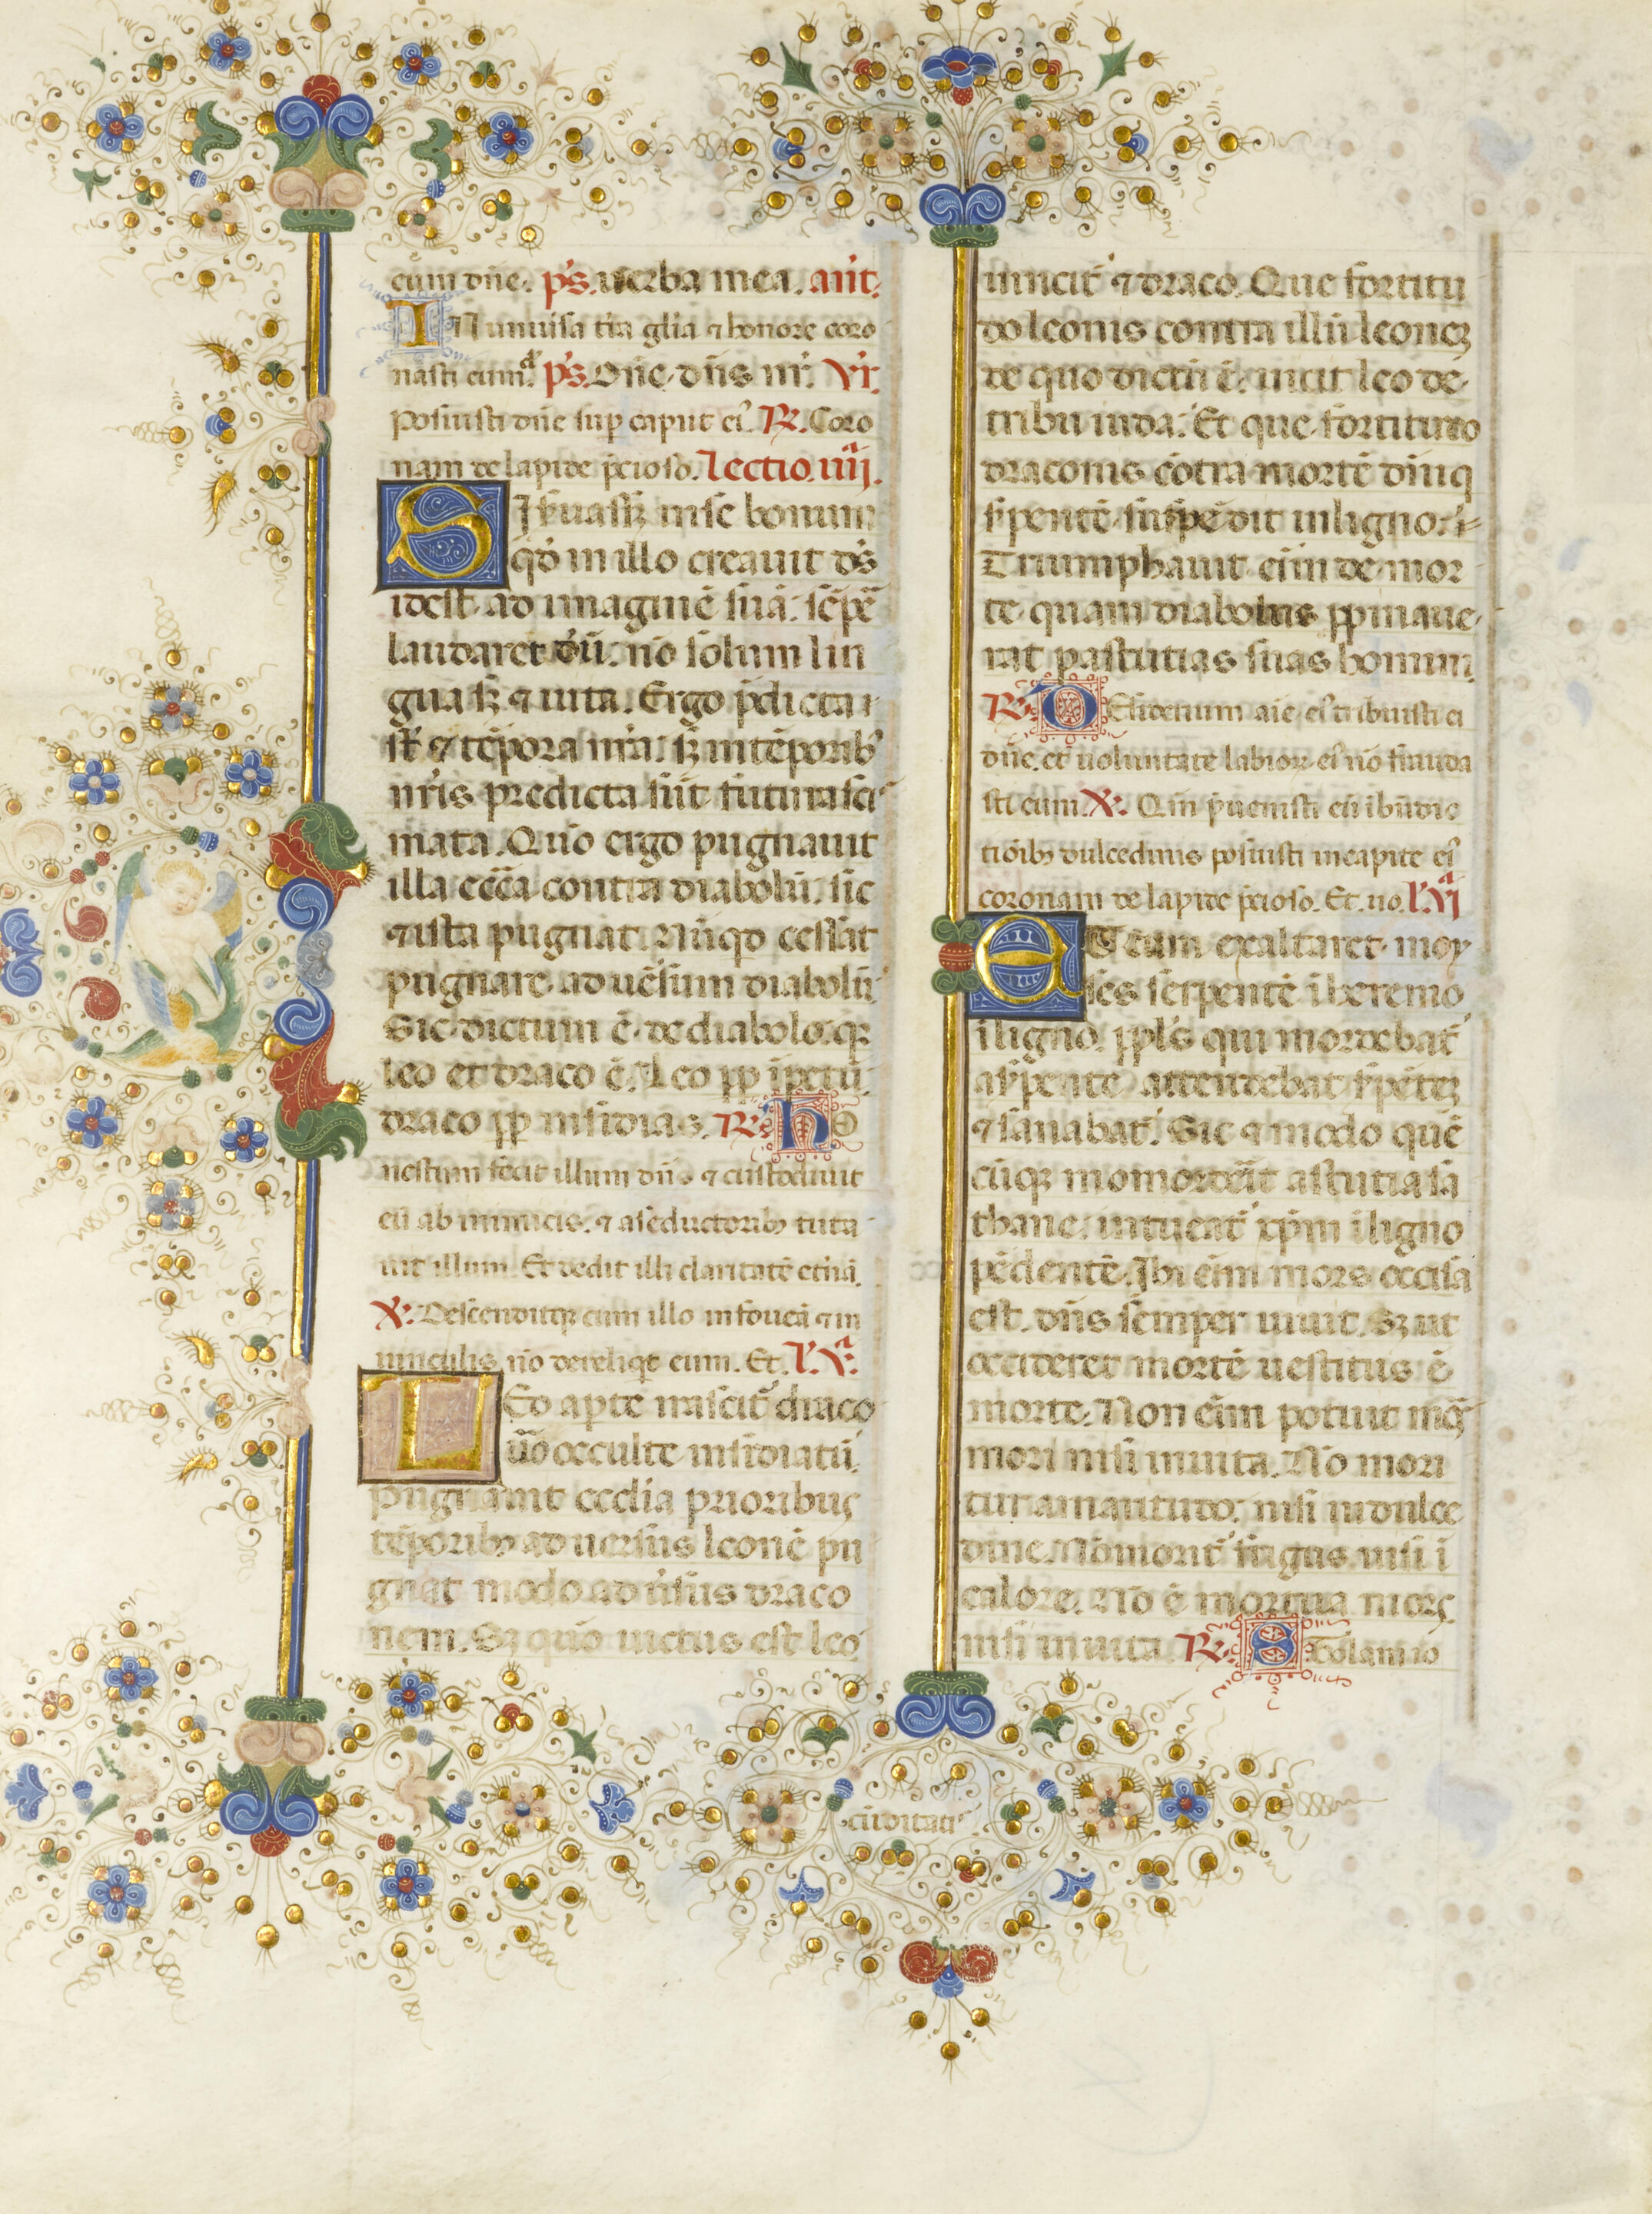 eum dn̄e. ps̄. uerba mea. an̄t.
IN uniuisa tr̄a gl̄ia ⁊ honore coro
nasti eum. ps̄. Dn̄e dn̄s nr̄. Vr̄.
Posuisti dn̄e sup caput ei᷒. R̷. Coro
nam de lapide p̄cioso. Lectio. iiijᵃ.
SI ẜuassꝫ in se bonum
qď in illo creauit ds̄
idest ad imaginē suā: sēpe᷒
laudaret dn̄ū: nō solum lin
gua sꝫ ⁊ uita. Ergo p̄dicta i
st̄ ⁊ tēpora nr̄a: sꝫ in tēporib᷒
nr̄is predicta sūt futura sci
mata. Quō ergo pugnauit
illa ecc̄a contra diabolū. sic
⁊ ista pugnat. Nūq̄d cessat
pugnare aduēsum diabolū
Sic dictum ē de diabolo. qꝫ
leo et draco ē. Leo ꝓp īpetū.
draco ꝓp insidias. R̷. hO
nestum fecit illum dn̄s ⁊ custodiuit
eū ab inimicis. ⁊ a seductorib᷒ tuta
uit illum. Et dedit illi claritatē et̄nā.
V̷. Descenditqꝫ cum illo in foueā ⁊ in
uinculis nō dereliqt eum. Et. l̄. Vᵃ.
LEo apte irascit᷑ draco
u͞o occulte insidiatū.
Pugnauit eccl̄ia prioribus
tēporib᷒ aduersus leonē pu
gnat modo ad ūsus draco
nem. Sꝫ quō uictus est leo
uincit᷑ ⁊ draco. Que fortitu
do leonis contra illū leoneꝫ
de quo dictū ē. uicit leo de
tribu iuda. Et que fortitudo
draconis cōtra mortē dn̄iq
ẜpentē suspēdit in ligno.
Triumphauit eīm de mor
te. quam diabolus ꝓpinaue
rat p astutias suas homini.
R̷. DEsiderium aīe ei᷒ tribuisti ei
dn̄e. et uoluntate labioꝝ ei᷒ nō frauda
sti eum. V̷. Qm̄ p̄uenisti eū ī bn̄dic
tiōib᷒ dulcedinis posuisti in capite ei᷒
coronam de lapide p̄cioso. Et. uo. l̄. Vjᵃ
ET cum exaltaret moy
ses serpentē ī heremo
ī ligno. ppl̄s qui mordebat᷑
a ẜpente attendebat ẜpēteꝫ
⁊ sanabat᷑. Sic ⁊ modo quē
cūqꝫ momorderit astutia sa
thane. intueat᷑ xp̄m ī ligno
pēdentē. Ibi eīm mors occisa
est. dn̄s semper uiuit. Sꝫ ut
occideret mortē uestitus ē
morte. Non eīm potuit mōs
mori nisi in uita. Nō mori
tur amaritudo. nisi in dulce
dine. Nō morit᷑ frigus. nisi ī
calore. Nō ē mortua mors
nisi in uita. R̷. STolam io
cūditati᷒